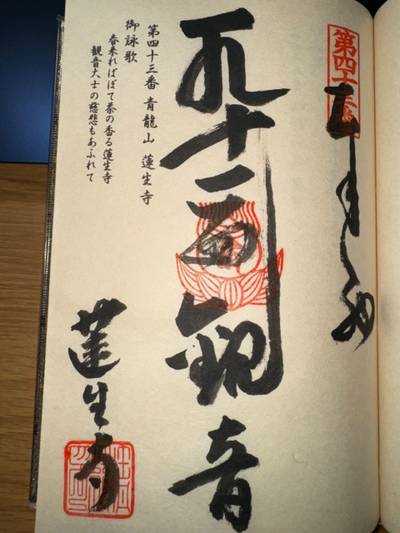 第四十
十一面観音
第四十三番 青龍山 蓮生寺
御詠歌
春来ればぼて茶の香る蓮生寺
観音大士の慈悲もあふれて
蓮生寺